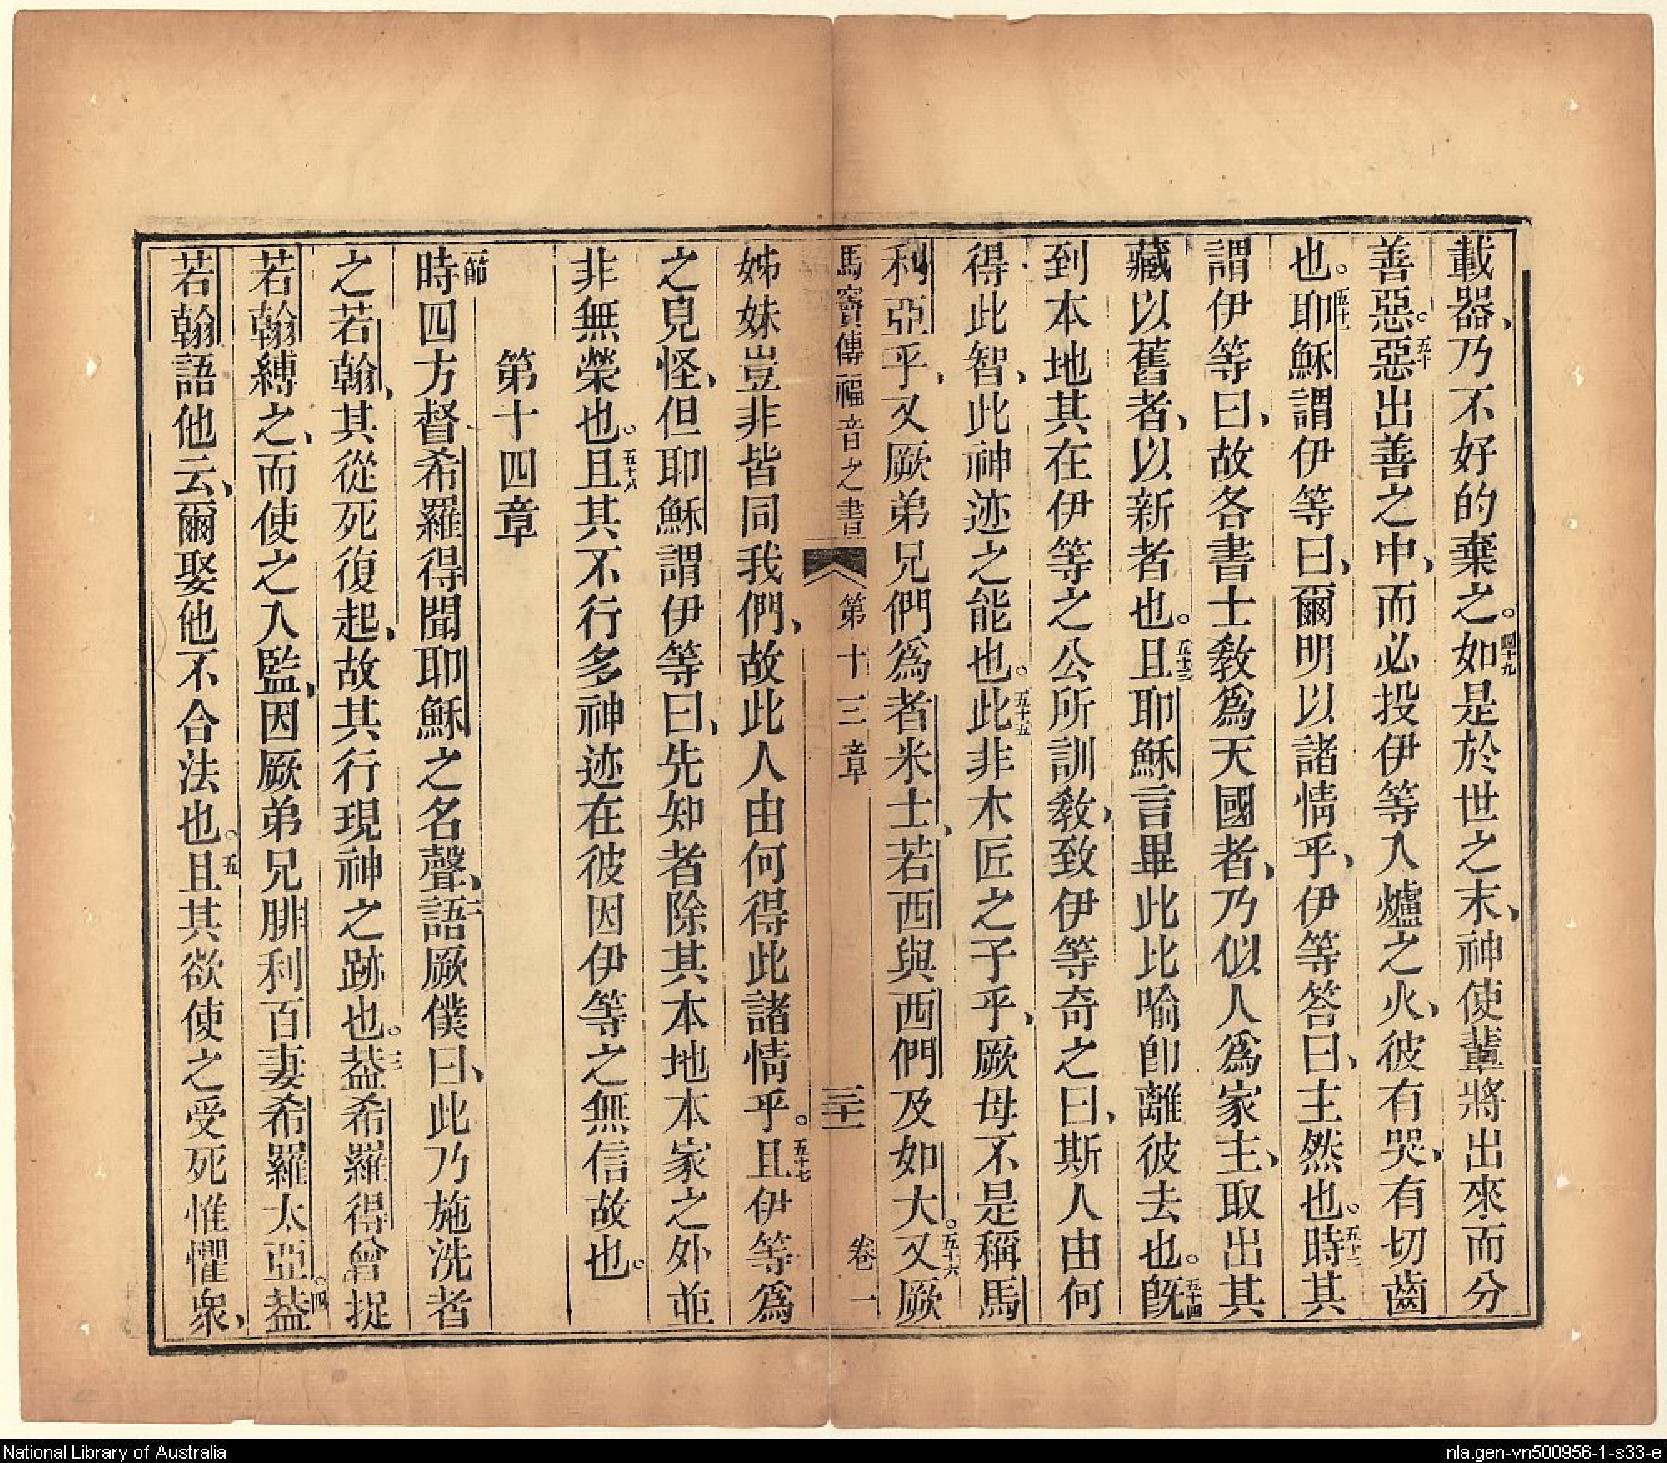 載器、乃不好的棄之。四十九如是於世之末、神使輩將出來、而分
善惡。五十惡出善之中、而必投伊等入爐之火、彼有哭、有切齒
也。五十一耶穌謂伊等曰、爾明以諸情乎、伊等答曰、主然也。五十二時其
謂伊等曰、故各書士敎爲天國者、乃似人爲家主、取出其
藏以舊者、以新者也。五十三且耶穌言畢此比喻卽離彼去也。五十四旣
到本地其在伊等之公所訓敎、致伊等奇之曰、斯人由何
得此智、此神迹之能也。五十五此非木匠之子乎、厥母不是稱馬
利亞乎、又厥弟兄們爲者米士、若西與西們及如大。五十六又厥
馬竇傳福音之書 第十三章 三十一 卷一
姊妹豈非皆同我們、故此人由何得此諸情乎。五十七且伊等爲
之見怪、但耶穌謂伊等曰、先知者除其本地本家之外並
非無榮也。五十八且其不行多神迹在彼因伊等之無信故也。
第十四章
一節時四方督希羅得聞耶穌之名聲、二語厥僕曰、此乃施洗者
之若翰、其從死復起、故其行現神之跡也。三葢希羅得曾捉
若翰縛之、而使之入監、因厥弟兄腓利百妻希羅太亞。四葢
若翰語他云、爾娶他不合法也。五且其欲使之受死惟懼衆、
National Library of Australia
nla.gen-vn500956-1-s33-e